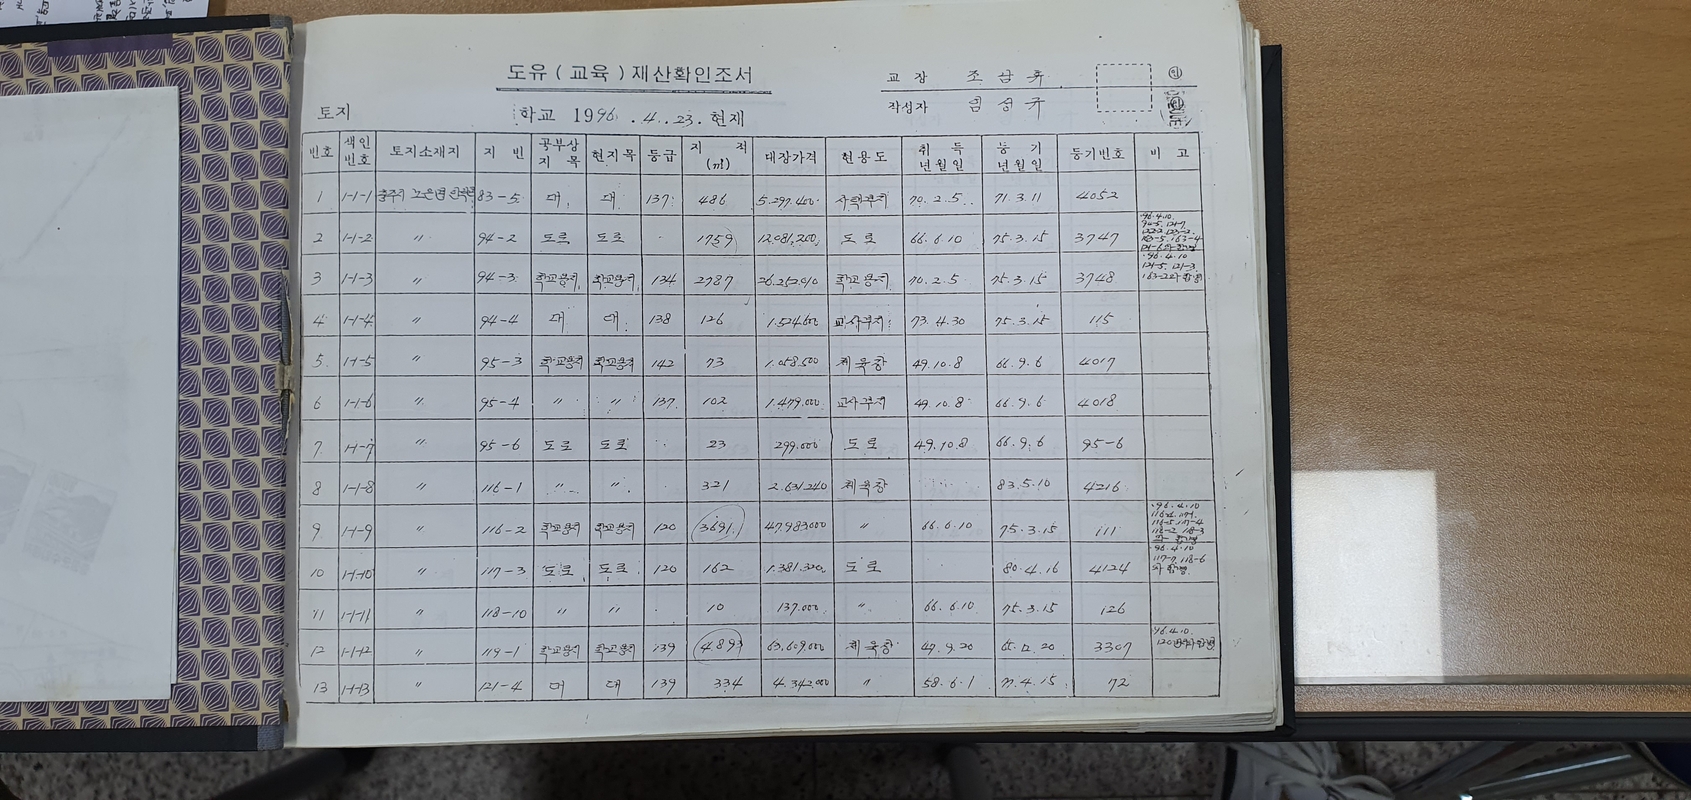 도유 ( 교육 ) 재산확인조서
교 장
작성자
토지 학교 1996 . 4 . 23 . 현재
번호 색인번호 토지소재지 지 번 공부상지 목 현지목 등급 지 적 (㎡) 대장가격 현용도 취 득 년월일 등 기 년월일 등기번호 비 고
1 1-1-1 충주시 노은면 83-5 대 대 137 486 5.297.400 70.2.5 71.3.11 4052
2 1-1-2 〃 94-2 도로 도로 1759 12.081.200 도로 66.6.10 75.3.15 3747 '96.4.10
3 1-1-3 〃 94-3 학교용지 학교용지 134 2787 26.252.010 학교용지 70.2.5 75.3.15 3748 '96.4.10 121-5, 121-3
4 1-1-4 〃 94-4 대 대 138 126 1.524.600 교사부지 73.4.30 75.3.15 115
5 1-1-5 〃 95-3 학교용지 학교용지 142 73 1.058.500 체육장 49.10.8 66.9.6 4017
6 1-1-6 〃 95-4 〃 〃 137 102 1.479.000 교사부지 49.10.8 66.9.6 4018
7 1-1-7 〃 95-6 도로 도로 23 299.000 도로 49.10.8 66.9.6 95-6
8 1-1-8 〃 116-1 〃 〃 321 2.631.240 체육장 83.5.10 4216
9 1-1-9 〃 116-2 학교용지 학교용지 120 3691 47.983.000 〃 66.6.10 75.3.15 111 '96.4.10
10 1-1-10 〃 117-3 도로 도로 120 162 1.381.320 도로 80.4.16 4124 '96.4.10 117-7, 118-6
11 1-1-11 〃 118-10 〃 〃 10 137.000 〃 66.6.10 75.3.15 126
12 1-1-12 〃 119-1 학교용지 학교용지 139 4893 63.609.000 체육장 47.9.20 65.12.20 3307 '96.4.10
13 1-1-13 〃 121-4 대 대 139 334 4.342.000 〃 58.6.1 77.4.15 72